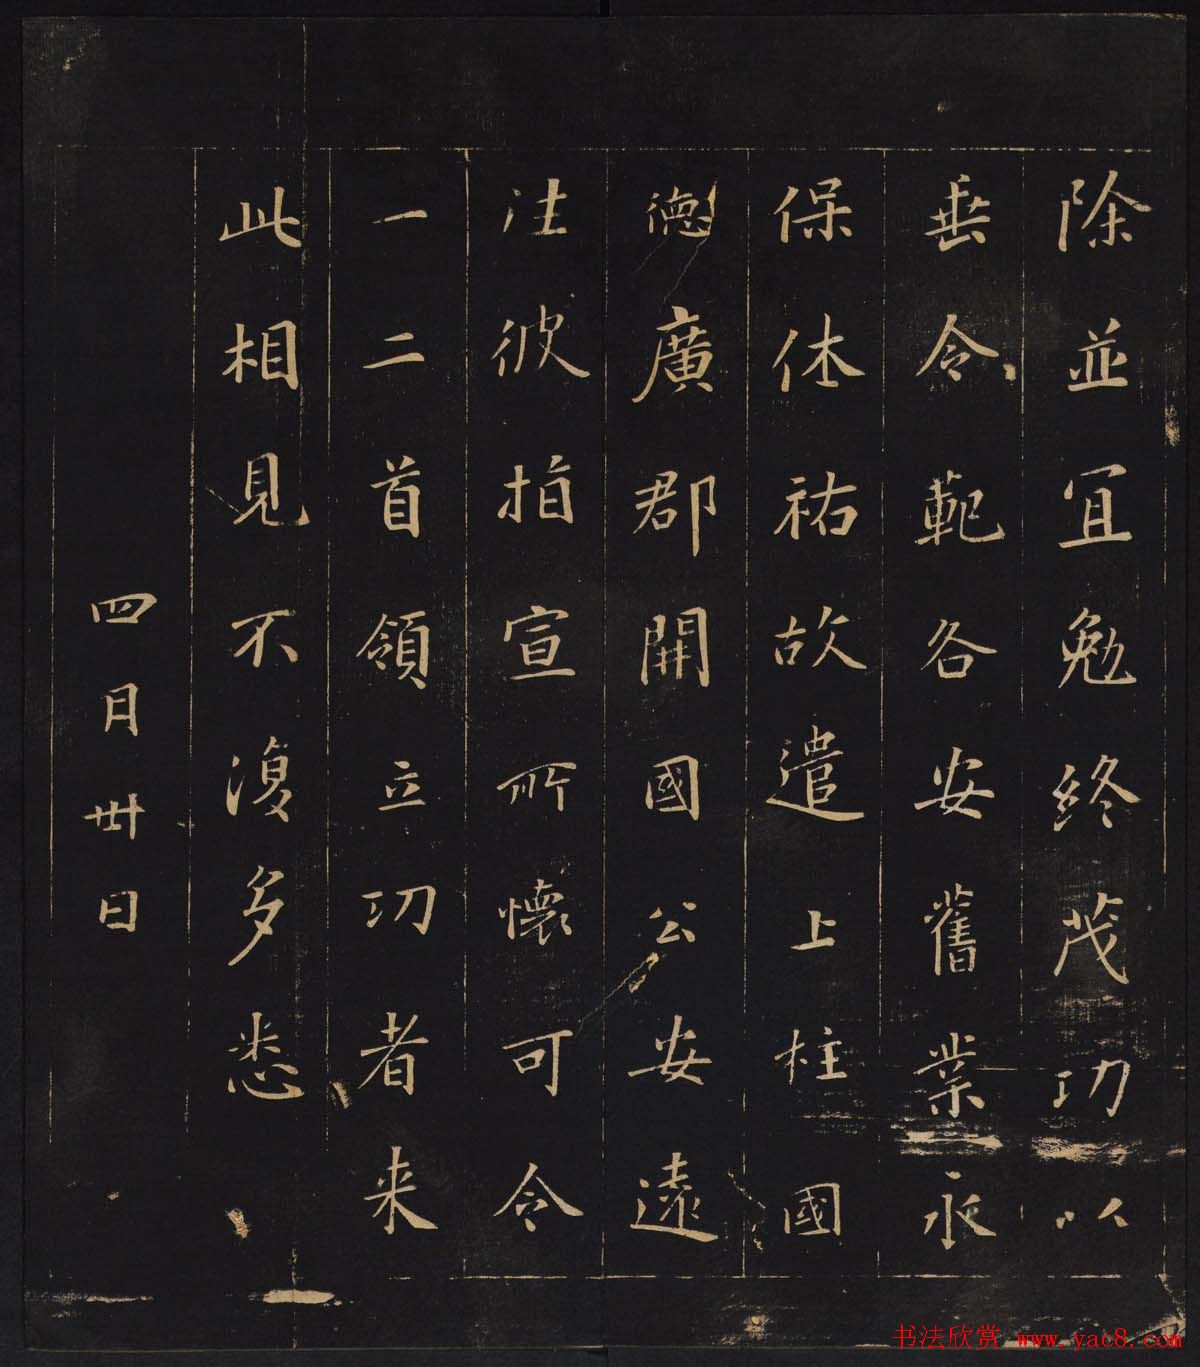 除並宜勉終茂功以
垂令範各安舊業永
保休祐故遣上柱國
德廣郡開國公安遠
注彼指宣所懷可令
一二首領立功者来
此相見不復多悉
四月卅日
书法欣赏 www.yac8.com